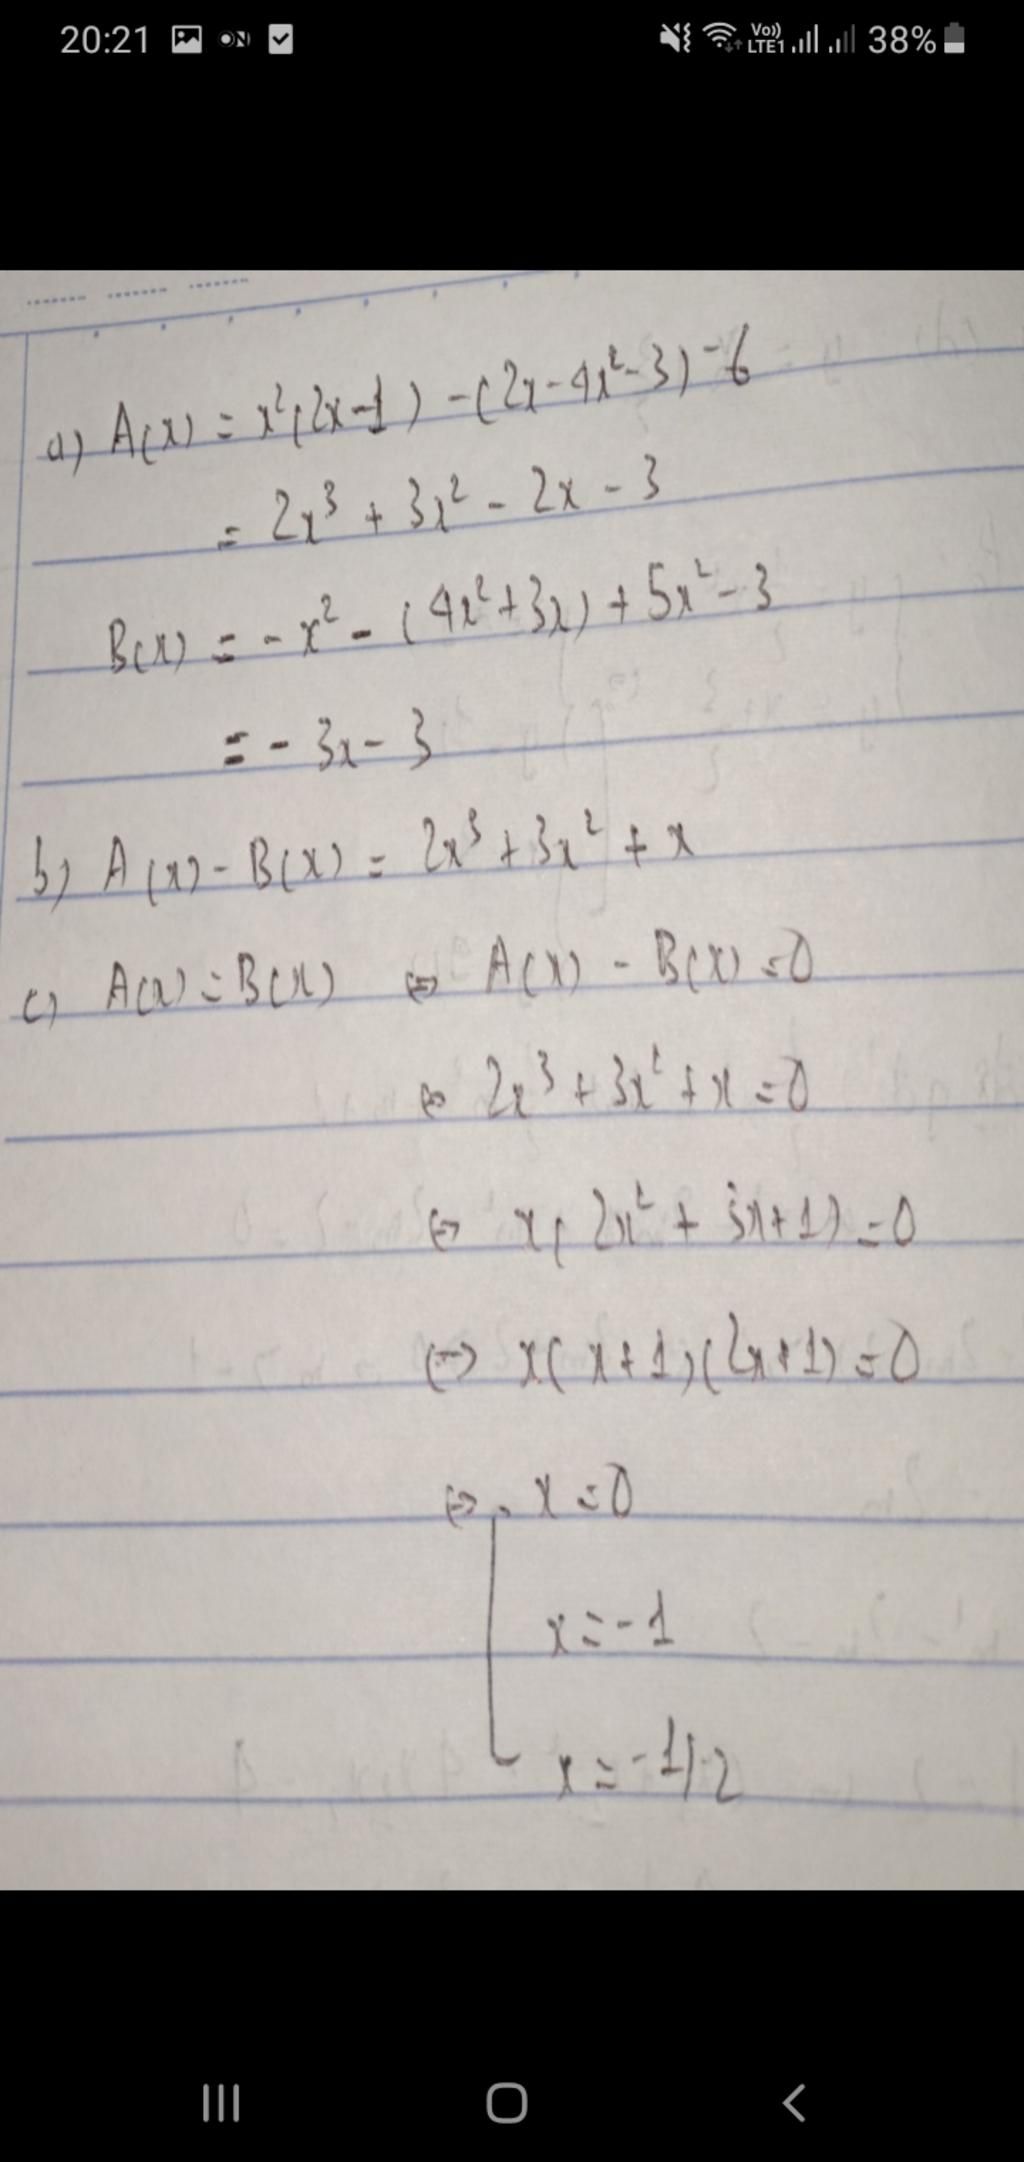 20:21 Vo)) LTE1 38%
a) A(x) = x²(2x-1) -(2x-4x²-3)-6
= 2x³ + 3x² - 2x - 3
B(x) = -x² - (4x²+3x) + 5x² - 3
= - 3x - 3
b) A(x) - B(x) = 2x³ + 3x² + x
c) A(x) = B(x) ⇔ A(x) - B(x) = 0
⇔ 2x³ + 3x² + x = 0
⇔ x(2x² + 3x+1) = 0
⇔ x(x+1)(2x+1) = 0
⇔ x = 0
x = -1
x = -1/2